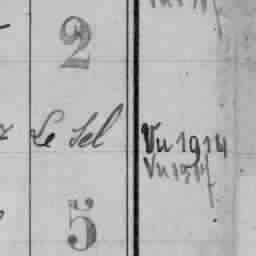 2
Le Sel
Vu 1914
Vu 1914
5